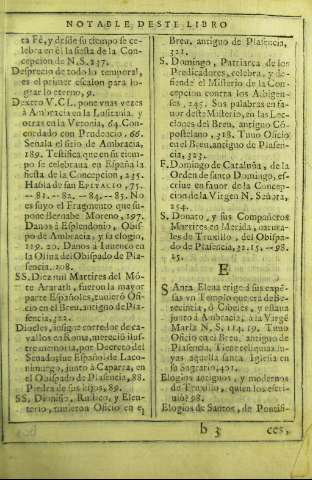 NOTABLE DESTE LIBRO
ta Fè, y desde su tiempo se ce-
lebra en èl la fiesta de la Con-
cepcion de N. S. 237.
Desprecio de todo lo temporal,
es el primer escalon para lo-
grar lo eterno, 9.
Dextro V.C L. pone vnas vezes
à Ambracia en la Lusitania, y
otras en la Vetonia, 64. Con-
cordado con Prudencio, 66.
Señala el sitio de Ambracia,
189. Testifica que en su tiem-
po se celebrava en España la
fiesta de la Concepcion, 235.
Habla de san EPITACIO, 75.
--81.--82.--84.--85. No
es suyo el Fragmento que su-
pone Bernabe Moreno, 197.
Danos à Esplendonio, Obis-
po de Ambracia, y su elogio,
119. 20. Danos à Iuuenco en
la Oliua del Obispado de Pla-
sencia, 208.
SS. Diez mil Martires del Mõ-
te Ararath, fueron la mayor
parte Españoles, tuuierò Ofi-
cio en el Breu. antiguo de Pla-
sencia, 322.
Diocles, insigne corredor de ca-
vallos en Roma, mereciò ilus-
tre memoria, por Decreto del
Senado; fue Español de Laco-
nimurgo, junto à Caparra, en
el Obispado de Plasencia, 88.
Piedra de sus hijos, 89.
SS. Dionisio, Rustico, y Eleu-
terio, tuuieron Oficio en el
Breu. antiguo de Plasencia,
321.
S. Domingo, Patriarca de los
Predicadores, celebra, y de-
fiende el Misterio de la Con-
cepcion contra los Albigen-
ses, 245. Sus palabras en fa-
uor deste Misterio, en las Lec-
ciones del Breu. antiguo Cõ-
postelano, 318. Tuuo Oficio
en el Breu. antiguo de Plasen-
cia, 323.
F. Domingo de Cataluña, de la
Orden de santo Domingo, es-
criue en fauor de la Concep-
cion de la Virgen N. Señora,
254.
S. Donato, y sus Compañeros
Martires en Merida, natura-
les de Truxillo, del Obispa-
do de Plasencia, 32. 15.--98.
25.
E
Santa Elena erige à sus expẽ-
sas vn Templo que era de Be-
recintia, ò Cibeles, y estaua
junto à Ambracia, à la Virgẽ
Maria N. S. 114. 19. Tuuo
Oficio en el Breu. antiguo de
Plasencia. Tiene reliquias su-
yas aquella santa Iglesia en
su Sagrario, 401.
Elogios antiguos, y modernos
de Truxillo, quien los escri-
uiò? 98.
Elogios de Santos, de Pontifi-
b 3
ces,